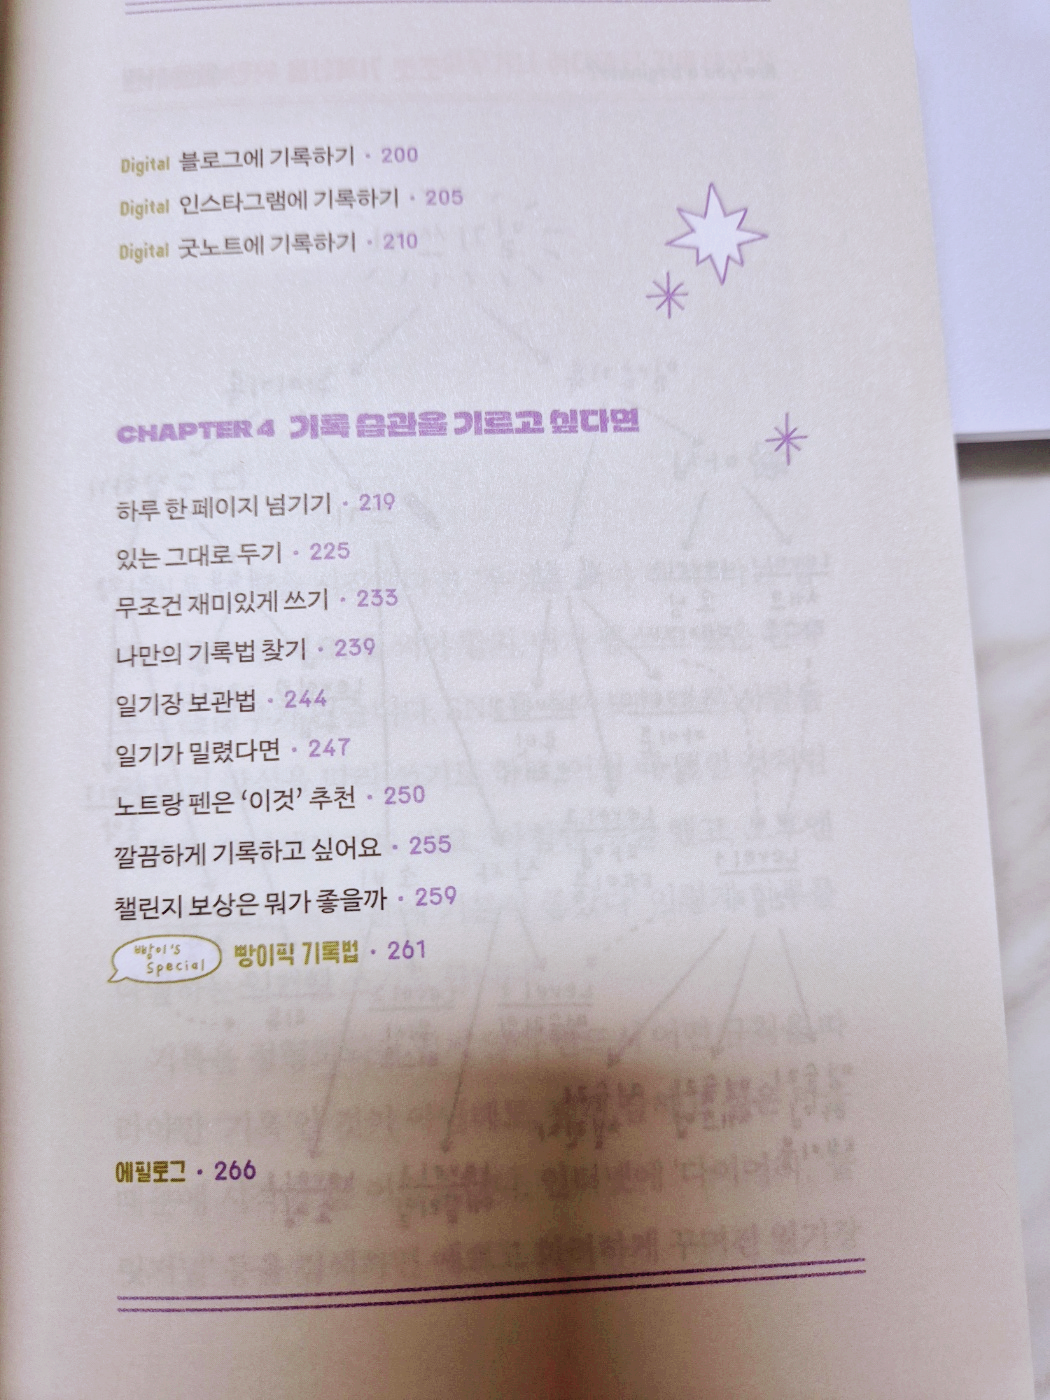 Digital 블로그에 기록하기 · 200
Digital 인스타그램에 기록하기 · 205
Digital 굿노트에 기록하기 · 210
CHAPTER 4 기록 습관을 기르고 싶다면
하루 한 페이지 넘기기 · 219
있는 그대로 두기 · 225
무조건 재미있게 쓰기 · 233
나만의 기록법 찾기 · 239
일기장 보관법 · 244
일기가 밀렸다면 · 247
노트랑 펜은 ‘이것’ 추천 · 250
깔끔하게 기록하고 싶어요 · 255
챌린지 보상은 뭐가 좋을까 · 259
빵이's Special 빵이픽 기록법 · 261
에필로그 · 266